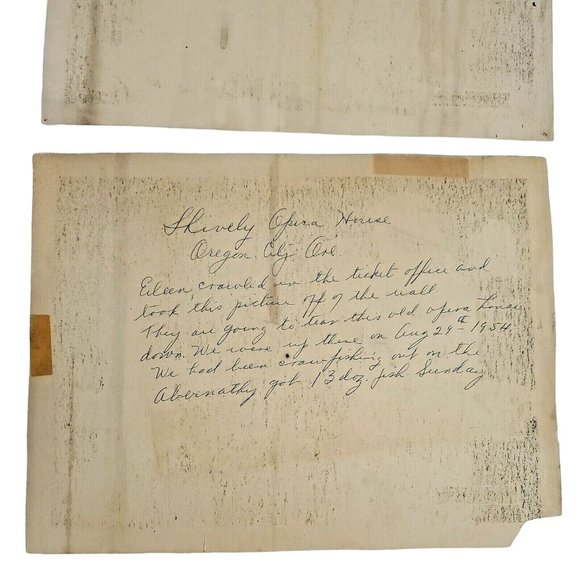 Shively Opera House
Oregon City Ore.
Eileen, crawled in the ticket office and
took this picture off of the wall.
They are going to tear this old opera house
down. We were up there on Aug 29th 1954.
We had been crawfishing out on the
Abernathy got 13 doz fish Sunday